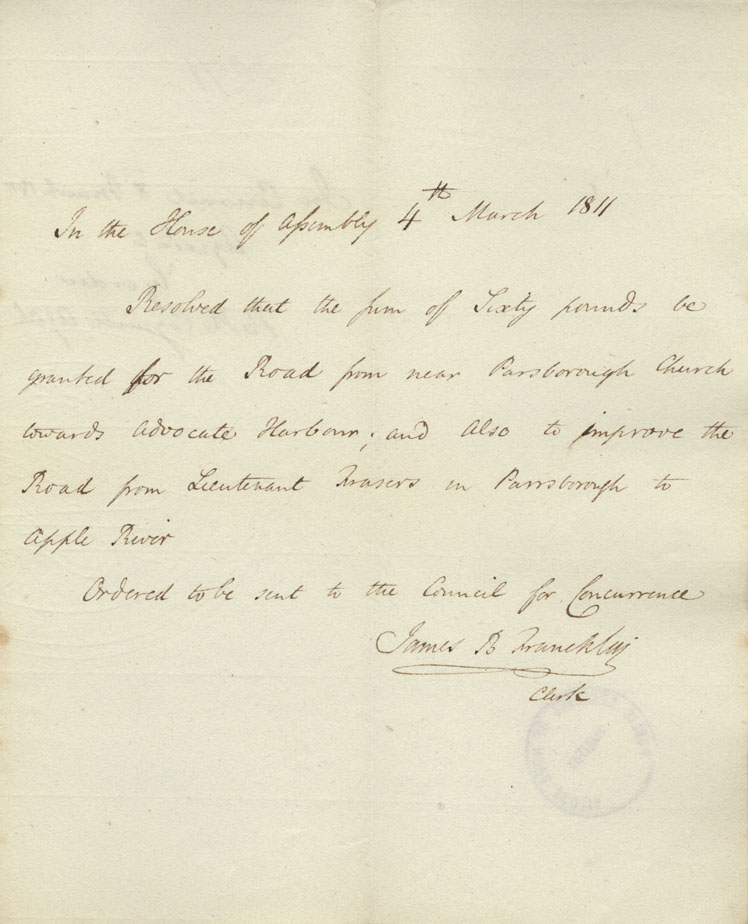 In the House of Assembly 4th March 1811
Resolved that the sum of Sixty pounds be
granted for the Road from near Parsborough Church
towards Advocate Harbour; and Also to improve the
Road from Lieutenant Frasers in Parrsborough to
Apple River
Ordered to be sent to the Council for Concurrence
James B Francklin
Clerk